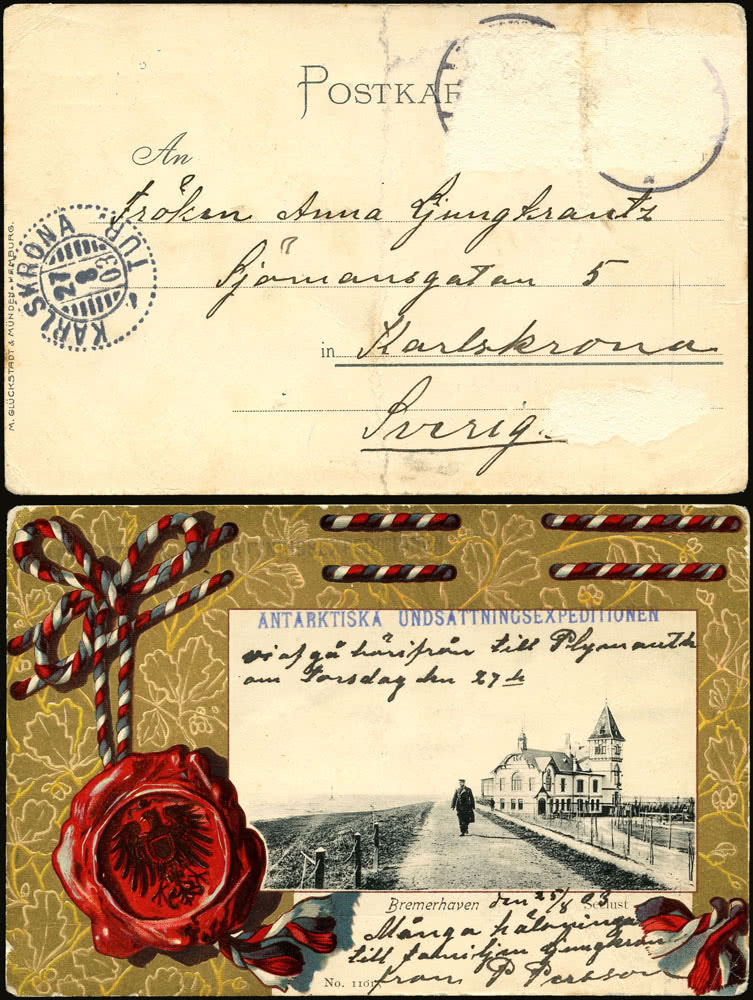 POSTKAR
An
Fröken Anna Ljungkrantz
Sjömansgatan 5
in Karlskrona
Sverig
KARLSKRONA TUR.
27
8
03
M. GLÜCKSTADT & MÜNDEN, HAMBURG.
ANTARKTISKA UNDSÄTTNINGSEXPEDITIONEN
vi afgå härifrån till Plymouth
om Torsdag den 27de
Bremerhaven den 25/8 03 Seelust
Många hälsningar
till familjen Ljungkran
från P Persson
No. 1101